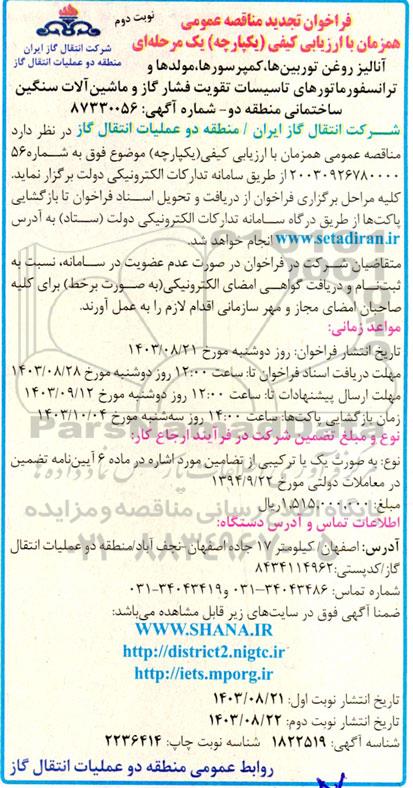 فراخوان تجدید مناقصه عمومی
نوبت دوم
همزمان با ارزیابی کیفی (یکپارچه) یک مرحله‌ای
شرکت انتقال گاز ایران
منطقه دو عملیات انتقال گاز
آنالیز روغن توربین‌ها،کمپرسورها،مولدها و
ترانسفورماتورهای تاسیسات تقویت فشار گاز و ماشین‌آلات سنگین
ساختمانی منطقه دو- شماره آگهی: ۸۷۳۳۰۰۵۶
شرکت انتقال گاز ایران / منطقه دو عملیات انتقال گاز در نظر دارد
مناقصه عمومی همزمان با ارزیابی کیفی(یکپارچه) موضوع فوق به شماره۵۶
۲۰۰۳۰۹۲۶۷۸۰۰۰۰ از طریق سامانه تدارکات الکترونیکی دولت برگزار نماید.
کلیه مراحل برگزاری فراخوان از دریافت و تحویل اسناد فراخوان تا بازگشایی
پاکت‌ها از طریق درگاه سامانه تدارکات الکترونیکی دولت (ستاد) به آدرس
www.setadiran.ir انجام خواهد شد.
متقاضیان شرکت در فراخوان در صورت عدم عضویت در سامانه، نسبت به
ثبت‌نام و دریافت گواهی امضای الکترونیکی(به صورت برخط) برای کلیه
صاحبان امضای مجاز و مهر سازمانی اقدام لازم را به عمل آورند.
مواعد زمانی:
تاریخ انتشار فراخوان: روز دوشنبه مورخ ۱۴۰۳/۰۸/۲۱
مهلت دریافت اسناد فراخوان تا: ساعت ۱۲:۰۰ روز دوشنبه مورخ ۱۴۰۳/۰۸/۲۸
مهلت ارسال پیشنهادات تا: ساعت ۱۲:۰۰ روز دوشنبه مورخ ۱۴۰۳/۰۹/۱۲
زمان بازگشایی پاکت‌ها: ساعت ۱۴:۰۰ روز سه‌شنبه مورخ ۱۴۰۳/۱۰/۰۴
نوع و مبلغ تضمین شرکت در فرآیند ارجاع کار:
نوع: به صورت یک یا ترکیبی از تضامین مورد اشاره در ماده ۶ آیین‌نامه تضمین
در معاملات دولتی مورخ ۱۳۹۴/۹/۲۲
مبلغ: ۱,۵۱۵,۰۰۰,۰۰۰ ریال
اطلاعات تماس و آدرس دستگاه:
آدرس: اصفهان/ کیلومتر ۱۷ جاده اصفهان -نجف آباد/منطقه دو عملیات انتقال
گاز/کدپستی:۸۴۳۴۱۱۴۹۶۲
شماره تماس: ۳۴۰۴۳۴۸۶-۰۳۱ و۳۴۰۴۳۴۱۹-۰۳۱
ضمنا آگهی فوق در سایت‌های زیر قابل مشاهده می‌باشد:
WWW.SHANA.IR
http://district2.nigtc.ir
http://iets.mporg.ir
تاریخ انتشار نوبت اول: ۱۴۰۳/۰۸/۲۱
تاریخ انتشار نوبت دوم: ۱۴۰۳/۰۸/۲۲
شناسه آگهی: ۱۸۲۲۵۱۹ شناسه نوبت چاپ: ۲۲۳۶۴۱۴
روابط عمومی منطقه دو عملیات انتقال گاز